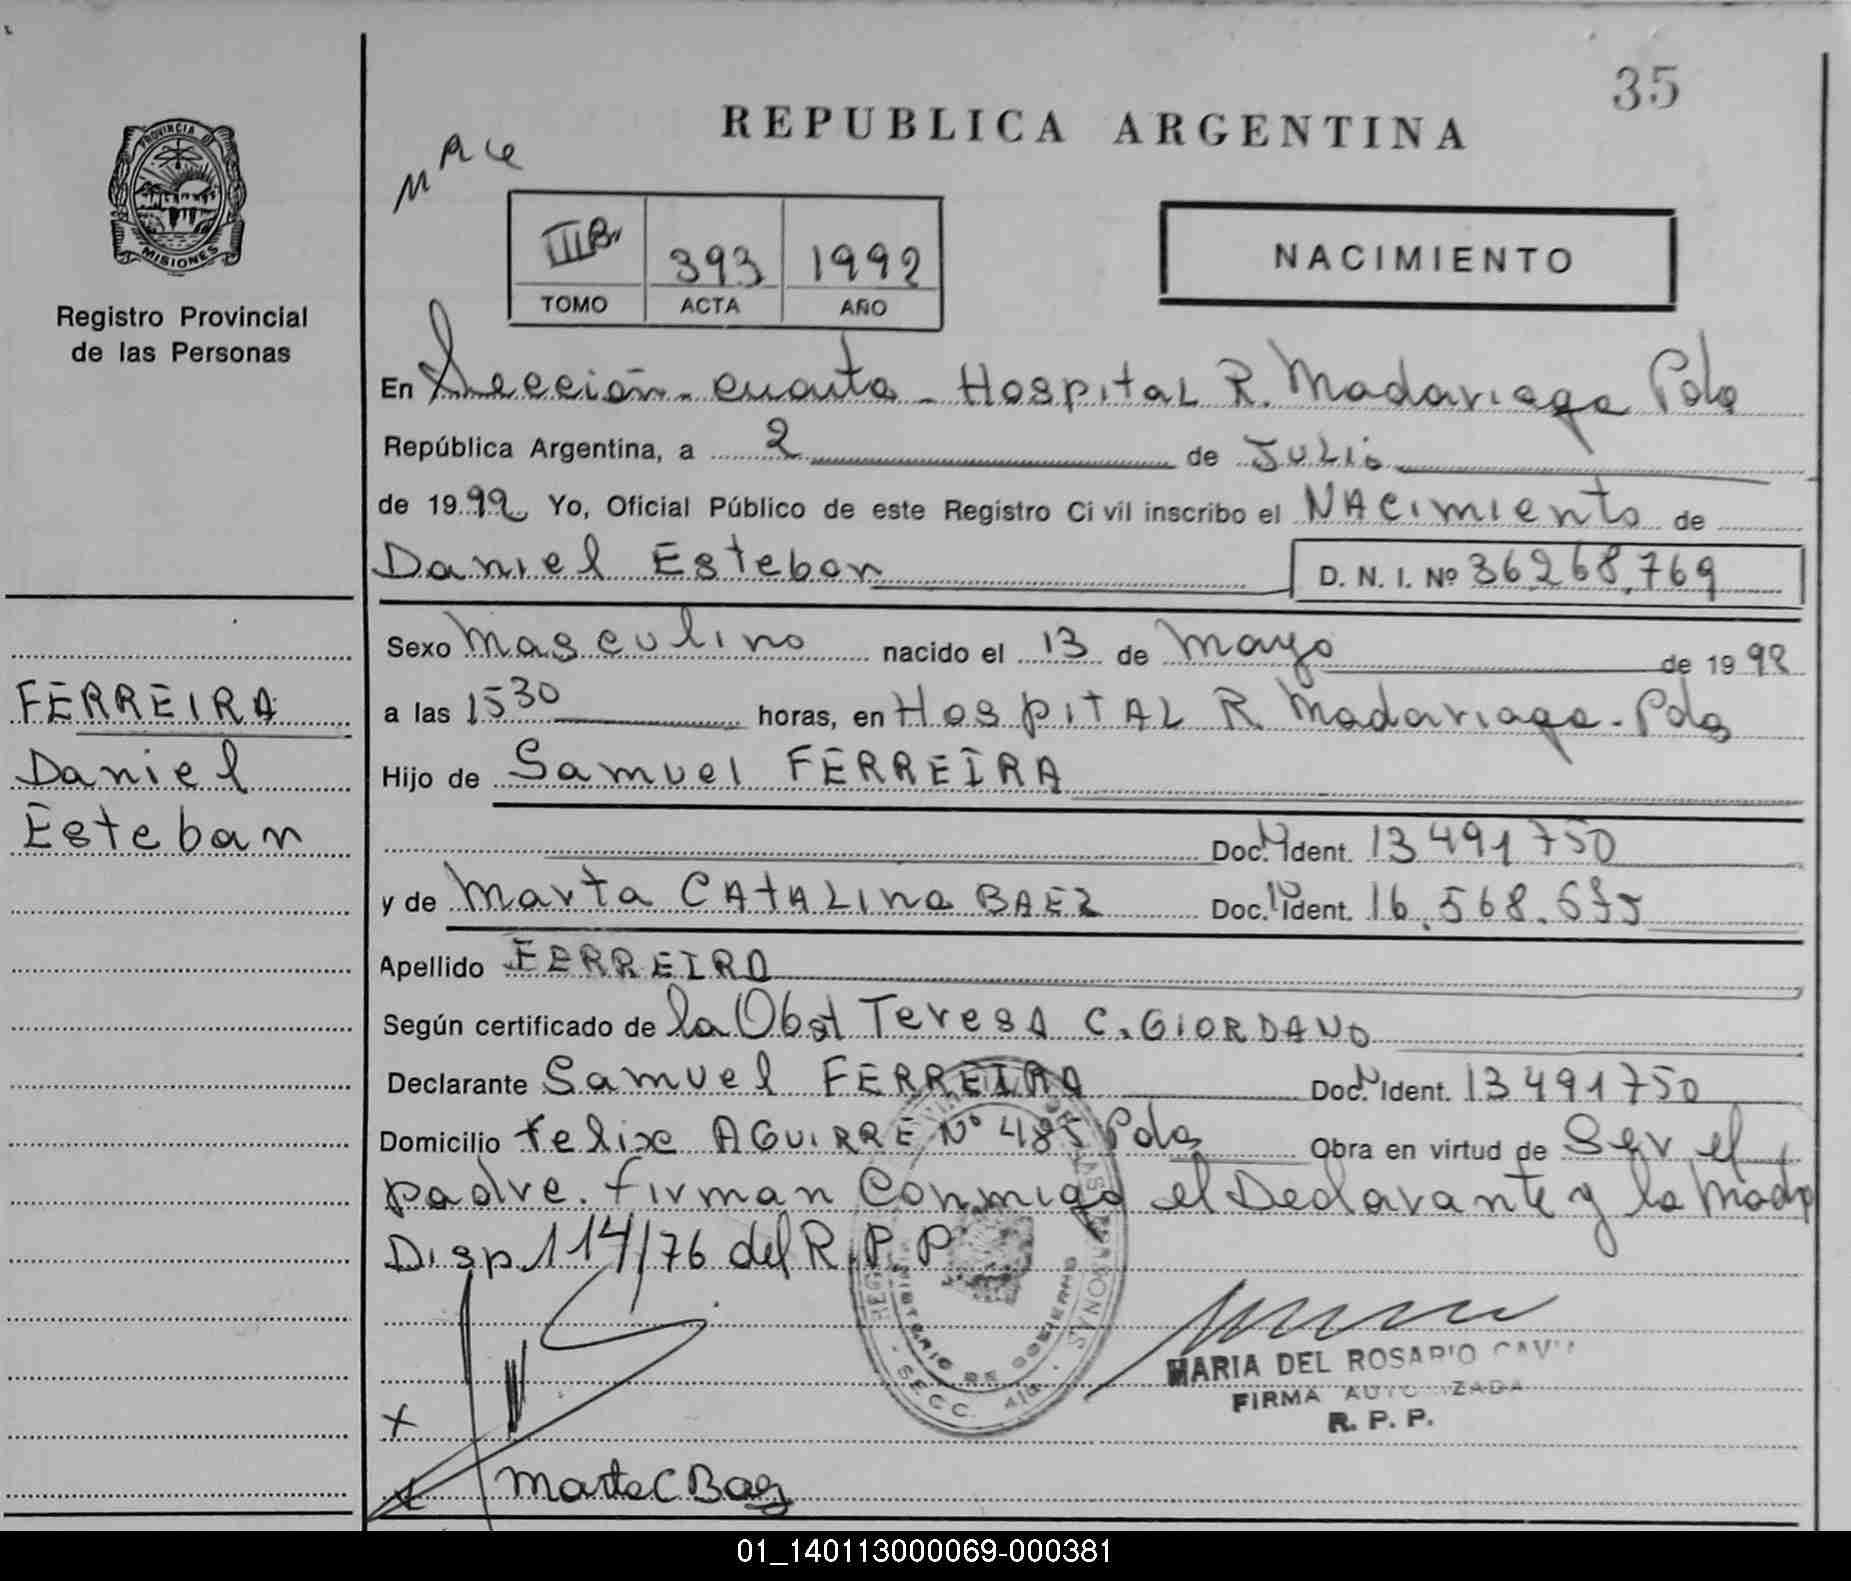 35
REPUBLICA ARGENTINA
PROVINCIA DE
MISIONES
Registro Provincial
de las Personas
III B 393 1992
TOMO ACTA AÑO
NACIMIENTO
En Sección cuarta - Hospital R. Madariaga Pdas
República Argentina, a 2 de Julio
de 1992 Yo, Oficial Público de este Registro Civil inscribo el NACimiento de
Daniel Esteban D. N. I. Nº 36.268.769
FERREIRA
Daniel
Esteban
Sexo Masculino nacido el 13 de Mayo de 1992
a las 1530 horas, en HospITAL R. Madariaga - Pdas
Hijo de Samuel FERREIRA
Doc. Ident. 13 491 750
y de Marta CATALINA BAEZ Doc. Ident. 16.568.
Apellido FERREIRA
Según certificado de la Obst Teresa C. GIORDANO
Declarante Samuel FERREIRA Doc. Ident. 13 491 750
Domicilio Felix AGUIRRE Nº 485 Pdas Obra en virtud de Ser el
padre. firman Conmigo el Declarante y la Madre
Disp. 114/76 del R.P.P
MINISTERIO DE GOBIERNO
SECC. 4ta
MARIA DEL ROSARIO
FIRMA AUTORIZADA
R. P. P.
X
Marta C Baez
01_140113000069-000381